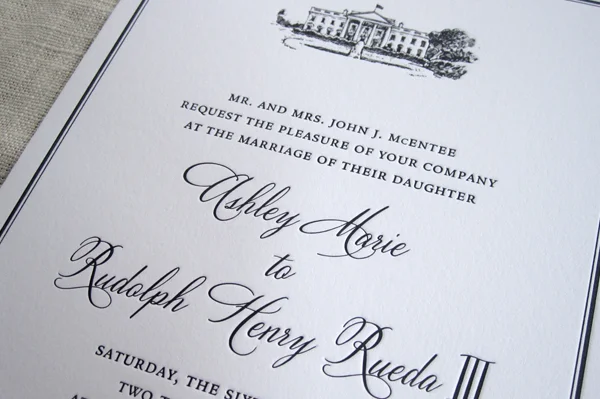 MR. AND MRS. JOHN J. McENTEE
REQUEST THE PLEASURE OF YOUR COMPANY
AT THE MARRIAGE OF THEIR DAUGHTER
Ashley Marie
to
Rudolph Henry Rueda III
SATURDAY, THE
TWO